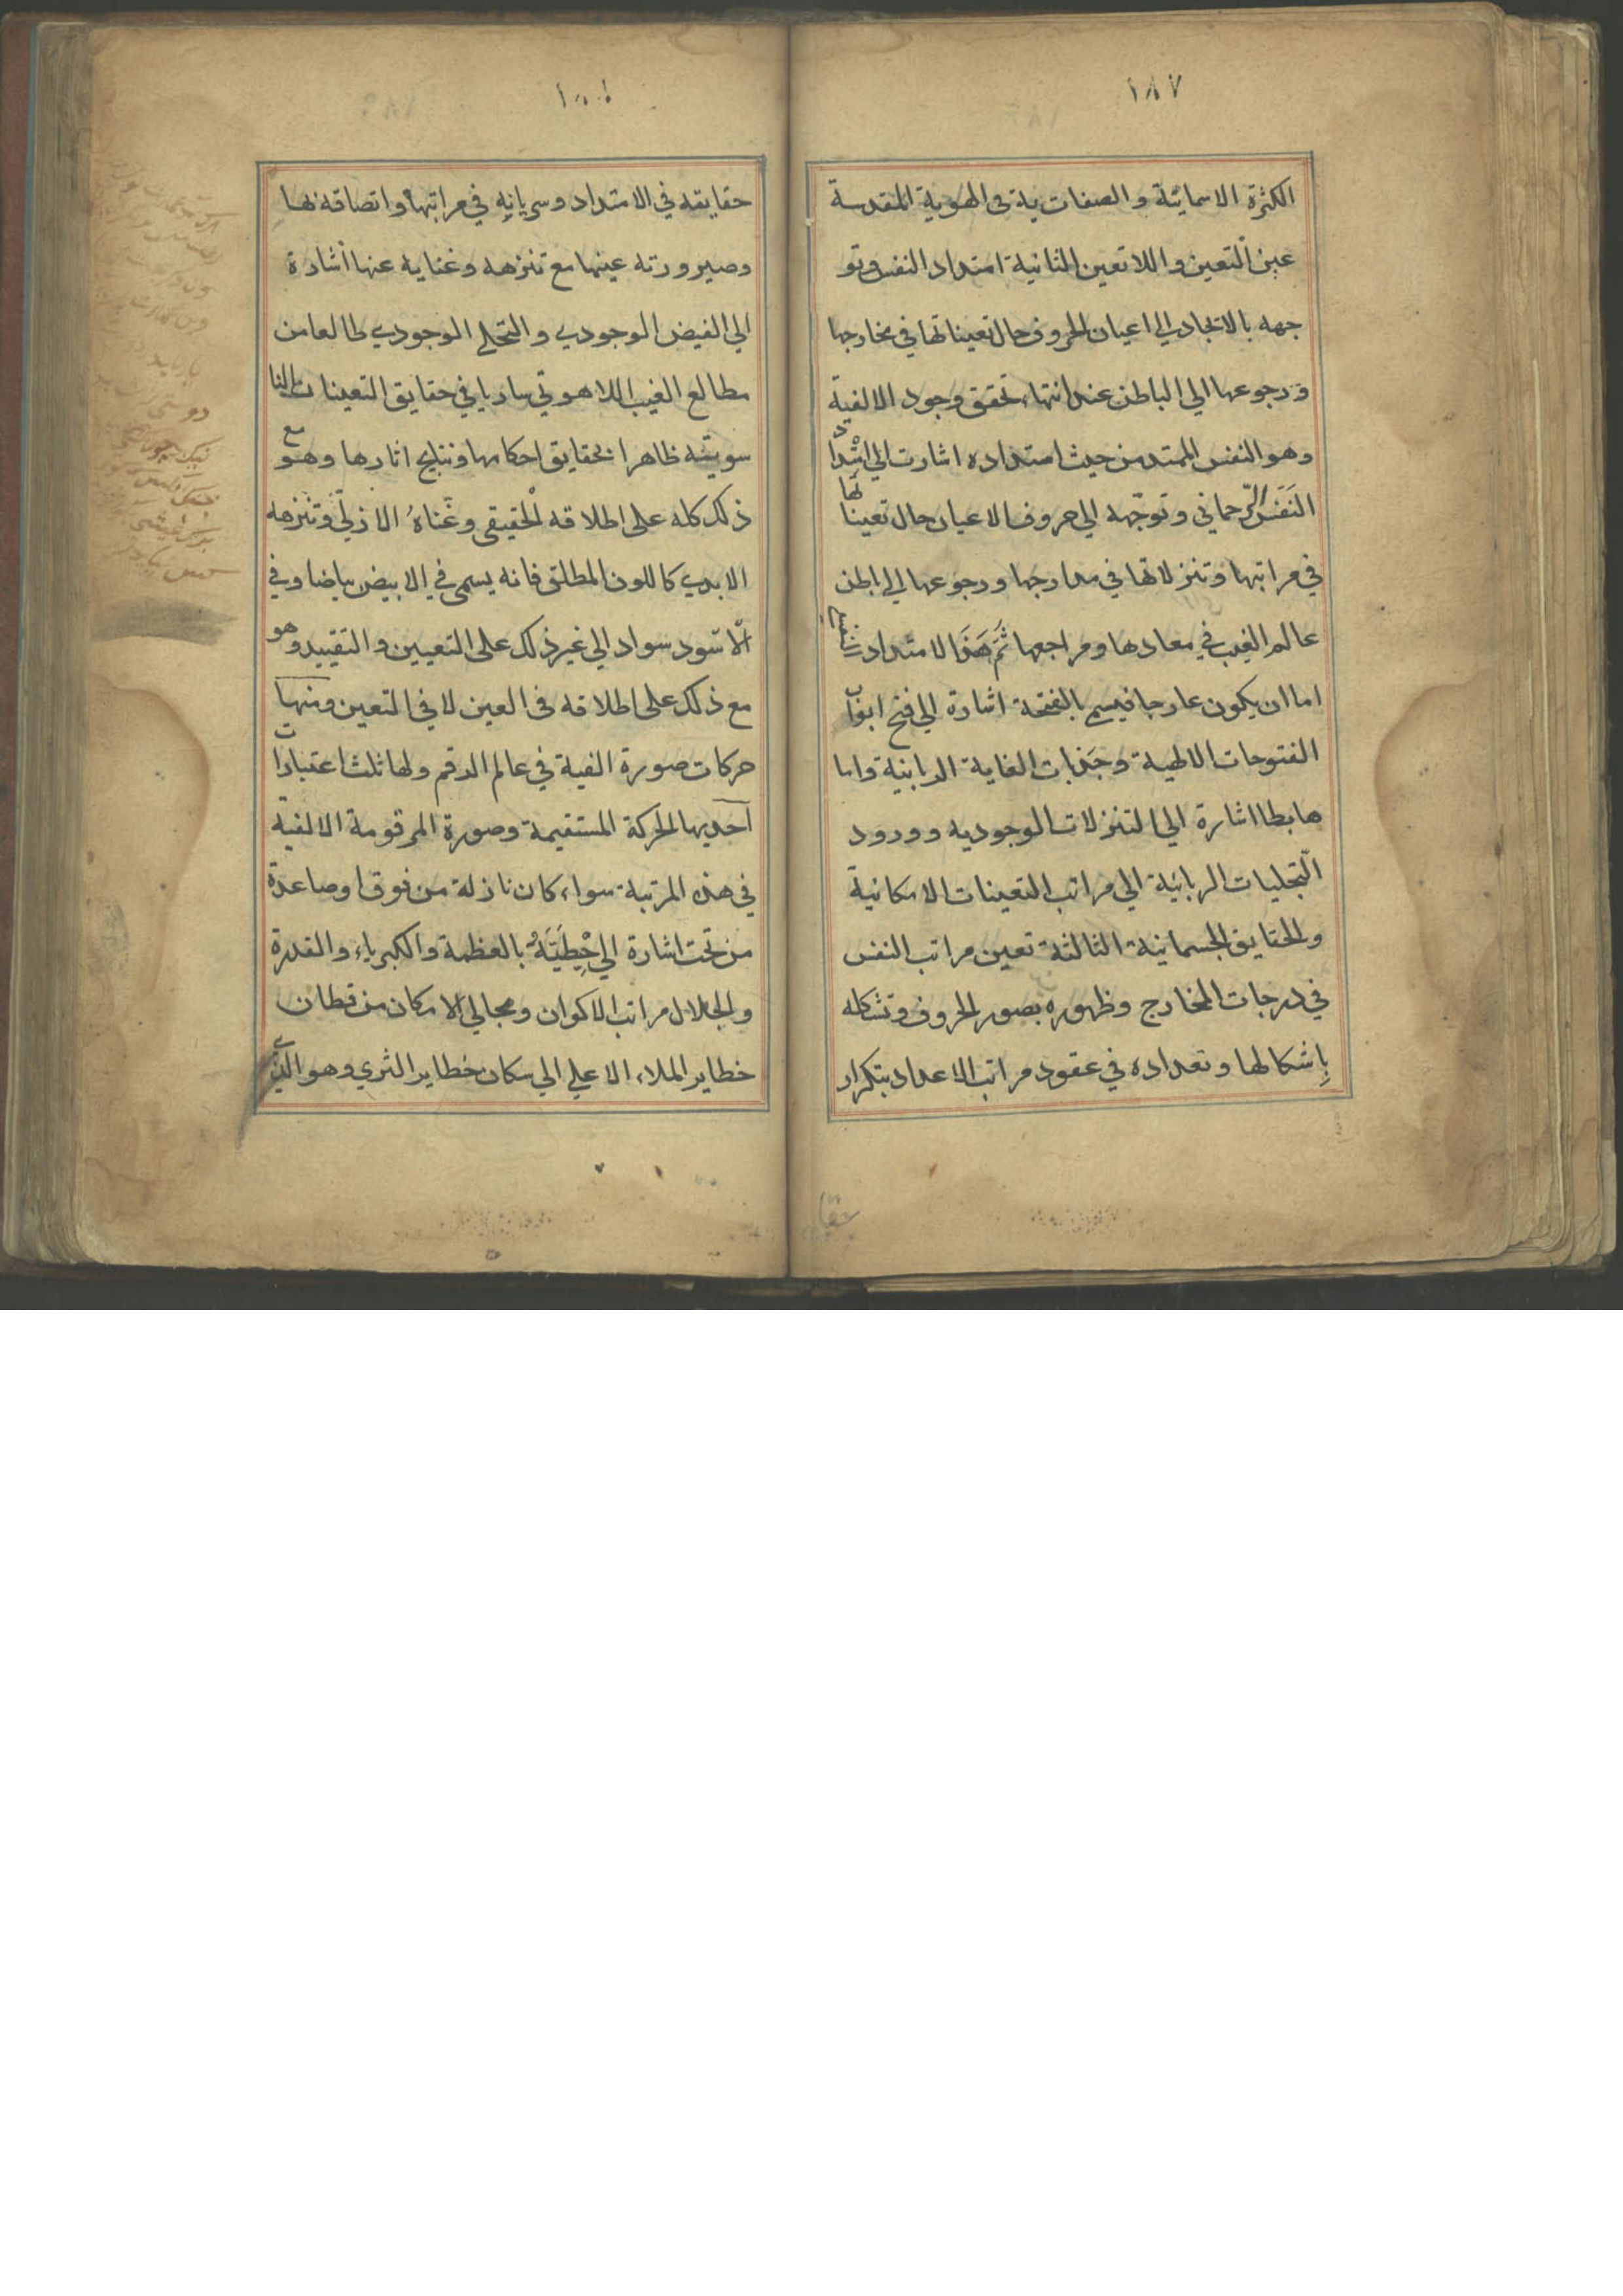 ١٨٧
الكثرة الاسمائية و الصفاتية فى الهوية المقدسة
عين التعين و اللا تعين الثانية امتداد النفس و تو
جهه بالايجادي الي اعيان الحروف حال تعيناتها في مخارجها
و رجوعها الي الباطن عند انتهاء تحقق وجود الالفية
وهو النفس الممتد من حيث امتداده اشارت الي ابتدا
د
النَفَس الرّحماني و توجّهه الي حروف الاعيان حال تعينا
تها
في مراتبها و تنزلاتها في مدارجها و رجوعها الي باطن
عالم الغيب في معادها و مراجعها ثَمَ هَذَا الامتداد
اما ان يكون عارجا فيسمي بالفتحة اشارة الي فتح ابواب
الفتوحات الالهية و جَذَبات الغاية الربانية و اما
هابطا اشارة الي التنزلات الوجوديه و ورود
التجليات الربانية الي مراتب التعينات الامكانية
و الحقايق الجسمانية الثالثة تعين مراتب النفس
في درجات المخارج و ظهوره بصور الحروف و تشكله
بِاشكالها و تعداده في عقود مراتب الاعداد بتكرار
حقايقه في الامتداد و سريانِهِ في مراتبها و اتصافه لها
و صيرورته عينها مع تنزهه و غنايه عنها اشارة
الي الفيض الوجودي و التجلي الوجودي طالعا من
مطالع الغيب اللاهوتي ساريا في حقايق التعينات النا
سوتيته ظاهرا بحقايق احكامها و نتايج اثارها و هو
مع
ذلك كله على اطلاقه الحقيقى و غَناهُ الازليّ و تنزهه
الابدي كاللون المطلق فانه يسمى في الابيض بياضا و في
الاسود سواد الي غير ذلك على التعيين و التقييد و هو
مع ذلك على اطلاقه فى العين لا فى التعين و منها
حركات صورة الفية في عالم الرقم و لها ثلث اعتبارات
احديها الحركة المستقيمة و صورة المرقومة الالفية
في هذه المرتبة سواء كان نازلة من فوق او صاعدة
من تحت اشارة الي حِيْطَيَتَهُ بالعظمة و الكبرياء و القدرة
و الجلال مراتب الاكوان و مجالي الامكان من قطان
خطاير الملاء الاعلي الي سكان خطاير الثري و هو الذي